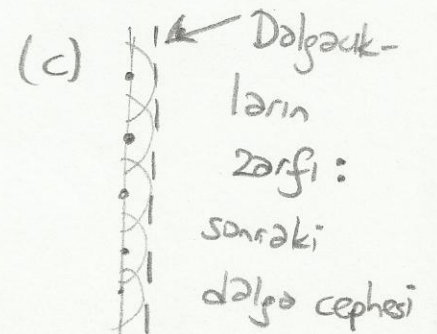 (c)
Dalgacık-
ların
zarfı:
sonraki
dalga cephesi